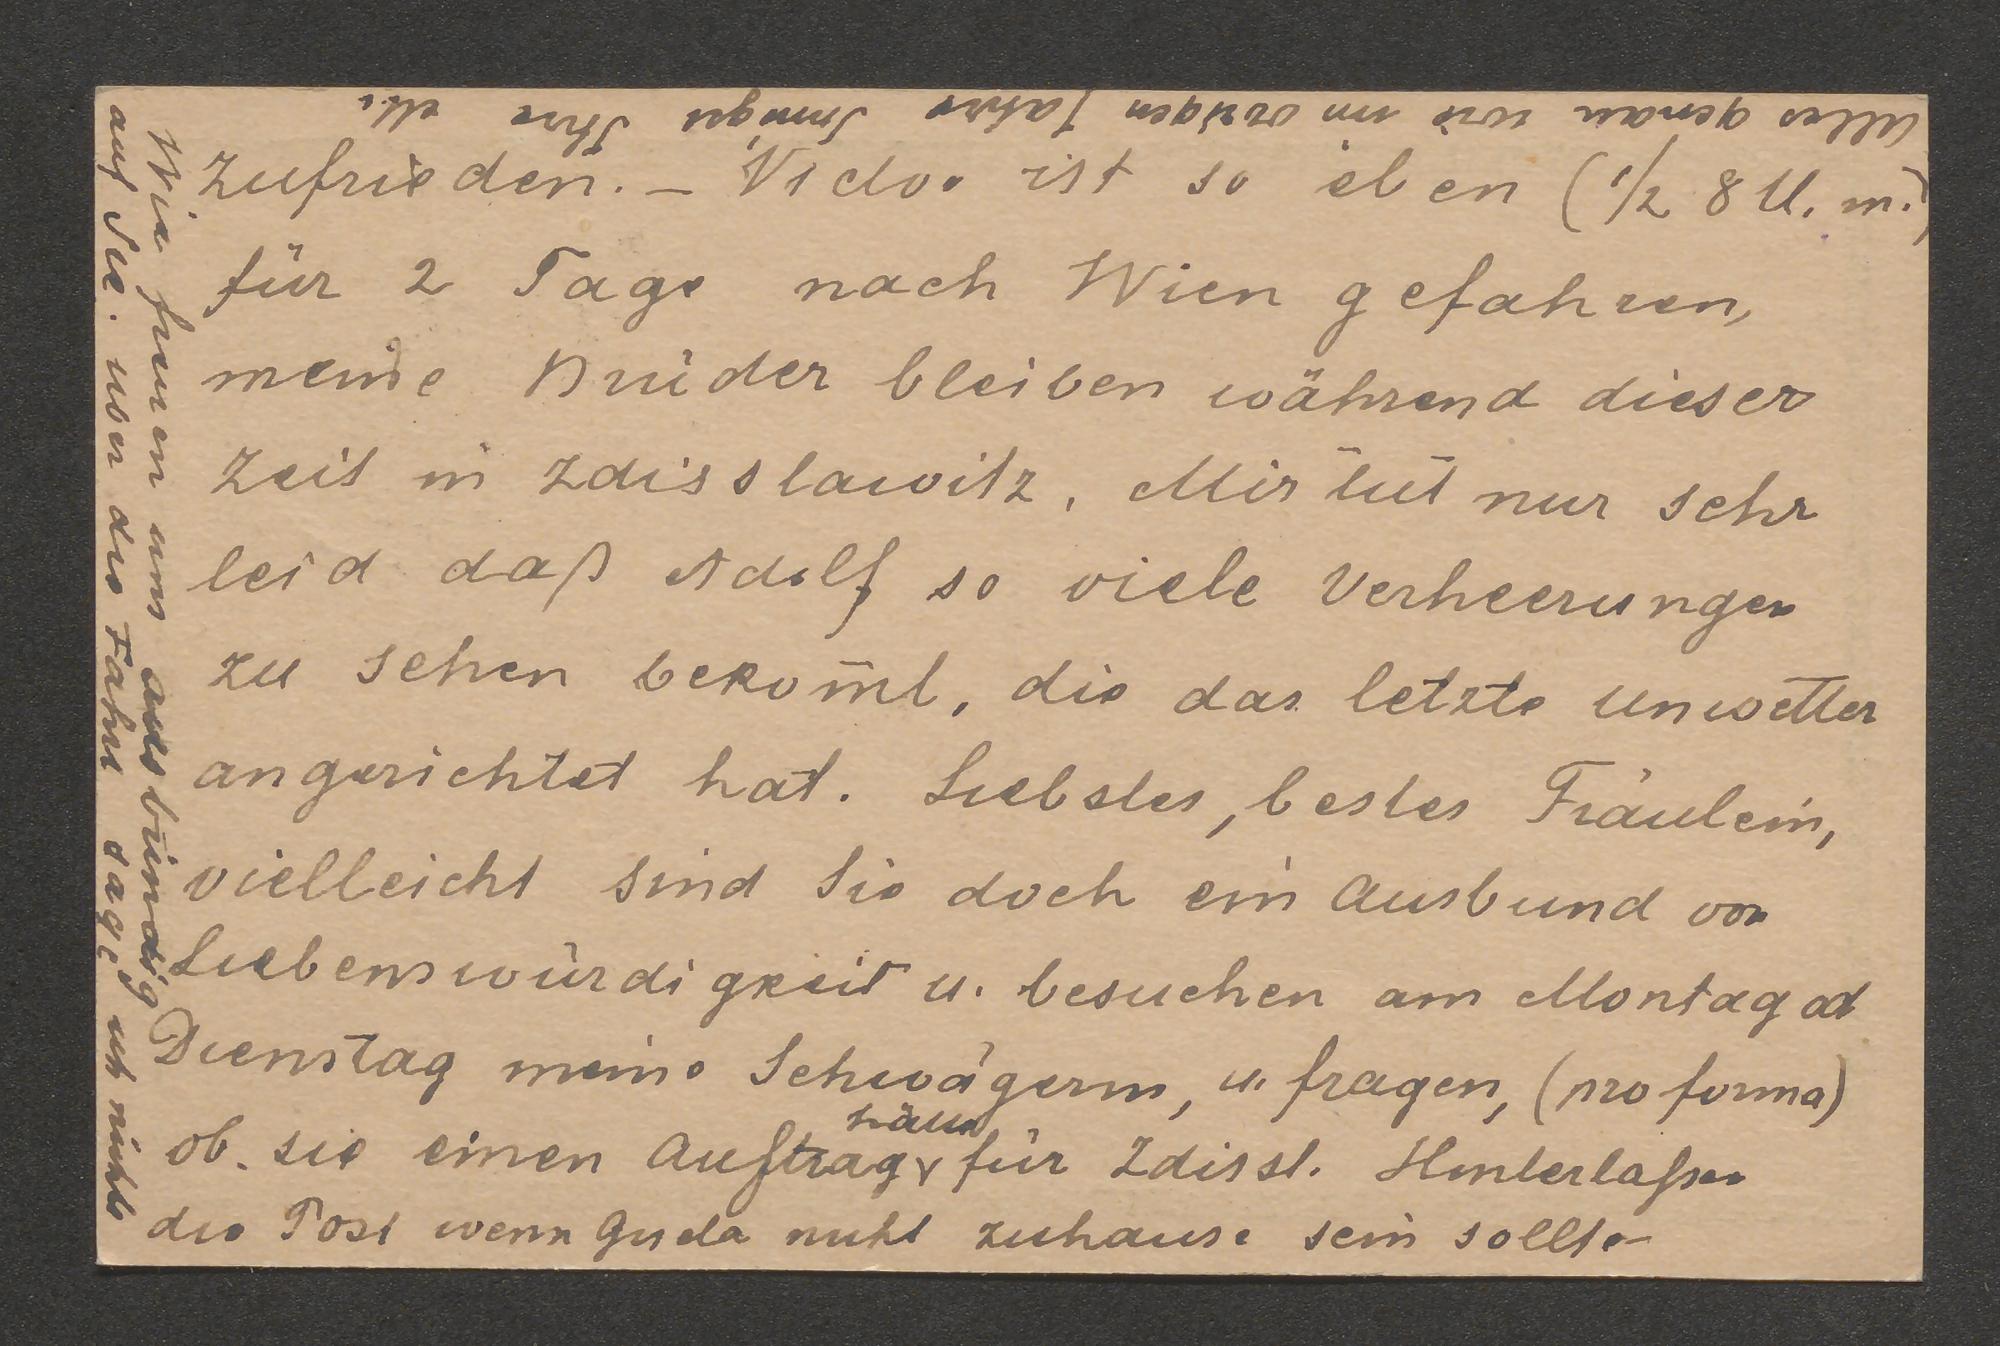 zufrieden. – Victor ist so eben (1/2 8 U. m.)
für 2 Tage nach Wien gefahren,
meine Brüder bleiben während dieser
Zeit in Zdisslawitz. Mir tut nur sehr
leid daß Adolf so viele Verheerungen
zu sehen bekom̄t, die das letzte Unwetter
angerichtet hat. Liebstes, bestes Fräulein,
vielleicht sind Sie doch ein Ausbund von
Liebenswürdigkeit u. besuchen am Montag od
Dienstag meine Schwägerin, u. fragen, (pro forma)
ob sie einen Auftrag hätte für Zdissl. Hinterlaßen
die Post wenn Guda nicht zuhause sein sollte–
Wir freuen uns ausbündig
auf Sie. von der Fahrt sage ich nichts
Alles genau wie im vorigen Jahre Innigst Ihre